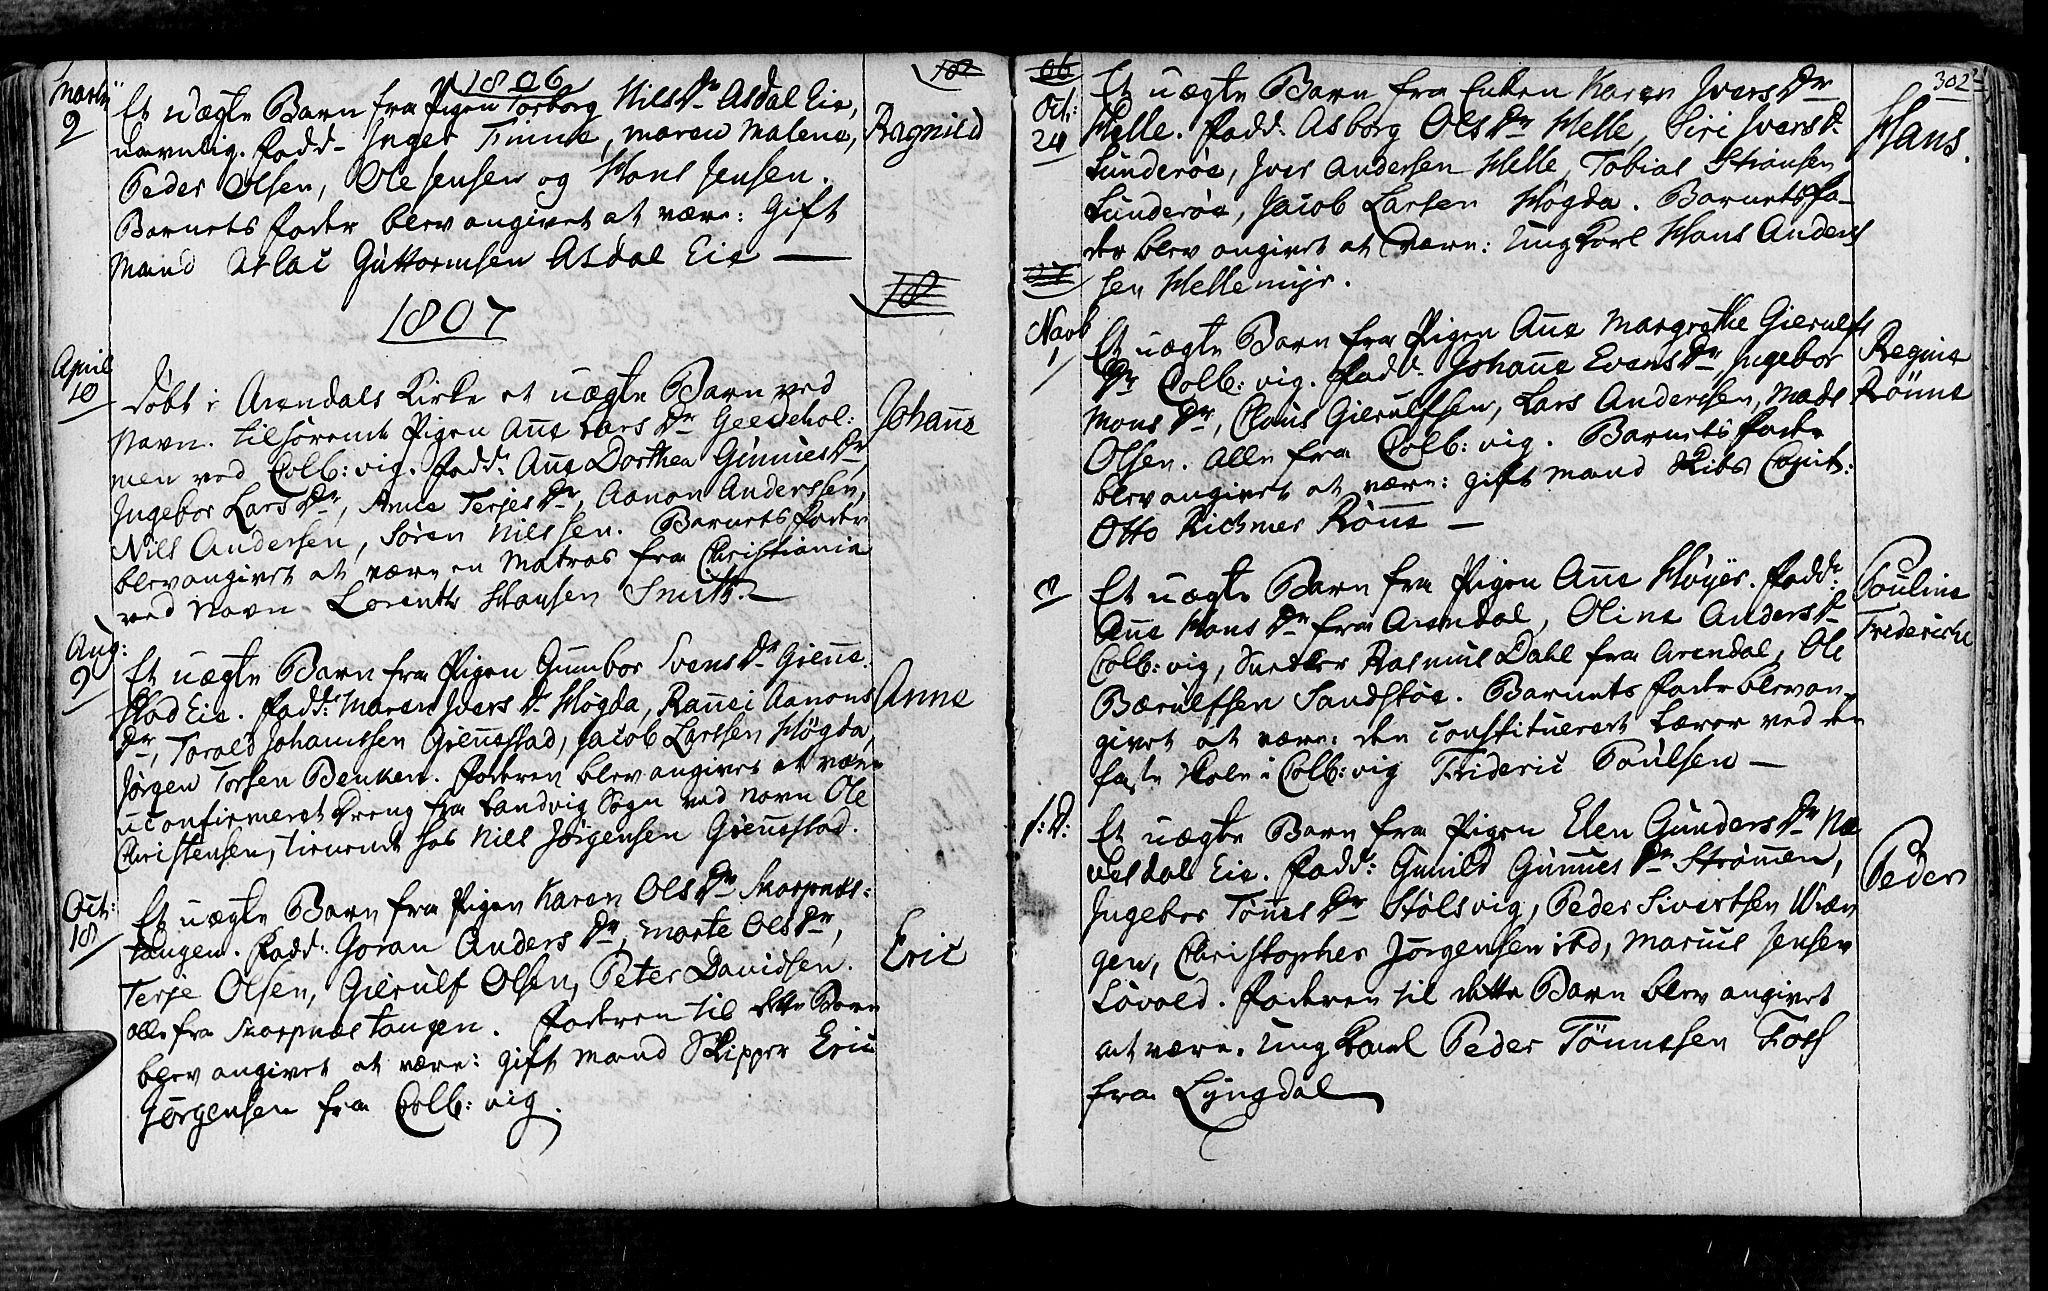 1806
Martii
9
Et uægte Barn fra Pigen Torborg NilsDr Asdal Eie,
navnlig. Fadd- Inger Finne, Maren Malene,
Ragnild
Peder Olsen, Ole Jensen og Hans Jensen.
Barnets Fader blev angivet at være: Gift
Mand Aslac Guttormsen Asdal Eie —
1807
April
10
Døbt i Arendals Kirke et uægte Barn ved
Johanne
Navn. tilhørende Pigen Anne Lars Dr Geedehol:
men ved Colb:vig. Fadd: Anne Dorthea GunnesDr,
Ingebor LarsDr, Anne TerjesDr, Aanon Anderssen,
Nils Andersen, Søren Nilssen. Barnets Fader
blev angivet at være en Matros fra Christiania
ved Navn Lorents Hansen Smith.
Aug:
9
Et uægte Barn fra Pigen Gunnbor Svens Dr Grenne
Anne
stad Eie. Fadd: Maren Ivers Dr Høgda, Rannei Aanons
Dr, Torald Johannssen Grennestad, Jacob Larssen Høgda,
Jørgen Torsen Benken. Faderen blev angivet at være
uconfirmeret Dreng fra Landvig Sogn ved Navn Ole
Christensen, tienende hos Nils Jørgensen Grennestad.
Oct:
18
Et uægte Barn fra Pigen Karen OlsDr Skarpnæs:
tangen. Fadd: Goran Anders Dr, Marte OlsDr,
Eric
Terje Olsen, Gierulf Olsen, Peter Davidsen.
alle fra Skarpnæstangen. Faderen til dette Barn
blev angivet at være: gift Mand Skipper Eric
Jørgensen fra Colb:vig.
302
06
Oct:
24
Et uægte Barn fra Enken Karen Ivers Dr
Hans.
Helle. Fadd: Asborg Ols Dr Helle, Siri IversDr
Sunderøe, Iver Andersen Helle, Tobias Stiansen
Sunderøe, Jacob Larsen Høgda. Barnets Fa-
der blev angivet at være: Ung Karl Hans Anders
sen Hellemyr.
Novb
1
Et uægte Barn fra Pigen Anne Margrethe Gierulfs
Regine
Dr Colb:vig. Fadd: Johanne EvensDr, Ingebor
Rönne
Mons Dr, Claus Gierulfsen, Lars Anderssen, Mads
Olsen. alle fra Colb:vig. Barnets Fader
blev angivet at være: gift Mand Skibs Capit:
Otto Richmer Rönne —
Et uægte Barn fra Pigen Anne Høyer. Fadd:
Poulina
Anne Hans Dr fra Arendal, Oline AndersDr
Friderichе
Colb:vig, Snetker Rasmus Dahl fra Arendal, Ole
Bærulfsen Sandskoe. Barnets Fader blev an-
givet at være: den constituerede Lærer ved den
faste Skole i Colb:vig Frideric Poulsen —
s:D:
Et uægte Barn fra Pigen Elen GundersDr Næ
Peder
veldal Eie. Fadd: Gunild Gunnes Dr Strømmen,
Ingebor Tönnes Dr Stölsvig, Peder Sivertsen Vræn
gen, Christopher Jørgensen ibd, Marius Jensen
Løvold. Faderen til dette Barn blev angivet
at være. Ung Karl Peder Tönnessen Foss
fra Lyngdal